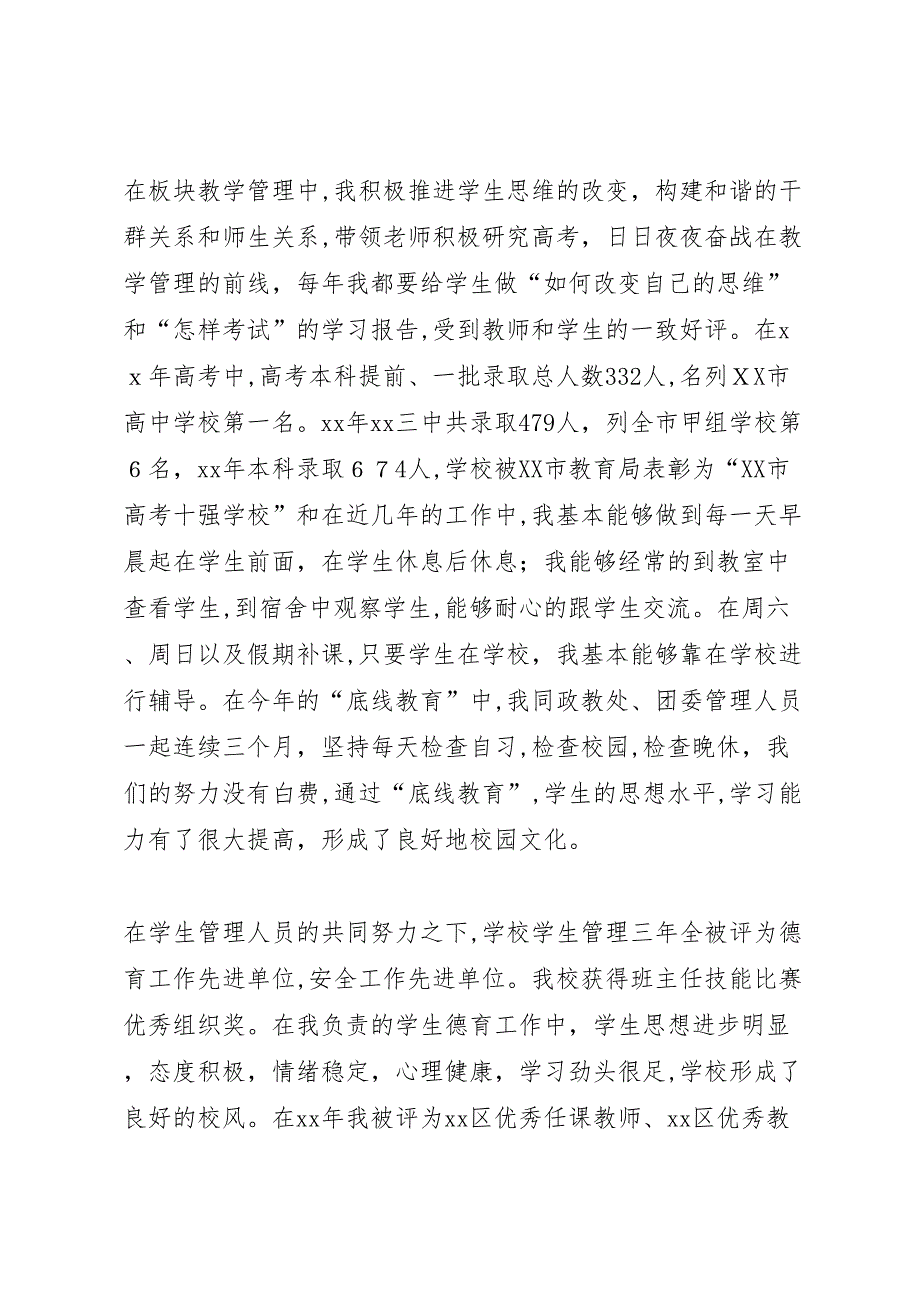 在板块教学管理中,我积极推进学生思维的改变，构建和谐的干
群关系和师生关系,带领老师积极研究高考，日日夜夜奋战在教
学管理的前线，每年我都要给学生做“如何改变自己的思维”
和“怎样考试”的学习报告,受到教师和学生的一致好评。在x
ｘ年高考中,高考本科提前、一批录取总人数332人,名列ＸX市
高中学校第一名。xx年xx三中共录取479人，列全市甲组学校第
６名，xx年本科录取６７4人,学校被XX市教育局表彰为“XX市
高考十强学校”和在近几年的工作中,我基本能够做到每一天早
晨起在学生前面，在学生休息后休息；我能够经常的到教室中
查看学生,到宿舍中观察学生,能够耐心的跟学生交流。在周六
、周日以及假期补课,只要学生在学校，我基本能够靠在学校进
行辅导。在今年的“底线教育”中,我同政教处、团委管理人员
一起连续三个月，坚持每天检查自习,检查校园,检查晚休，我
们的努力没有白费,通过“底线教育”,学生的思想水平,学习能
力有了很大提高，形成了良好地校园文化。
在学生管理人员的共同努力之下,学校学生管理三年全被评为德
育工作先进单位,安全工作先进单位。我校获得班主任技能比赛
优秀组织奖。在我负责的学生德育工作中，学生思想进步明显
，态度积极，情绪稳定，心理健康，学习劲头很足,学校形成了
良好的校风。在xx年我被评为xx区优秀任课教师、xx区优秀教